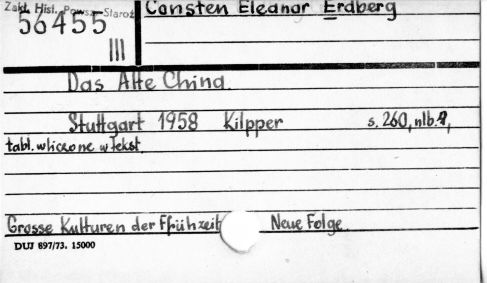 Zakł. Hist. Powsz. Staroż.
Consten Eleanor Erdberg
56455
III
Das Alte China.
Stuttgart 1958 Kilpper s. 260, nlb. 2,
tabl. wliczone w tekst.
Grosse Kulturen der Frühzeit Neue Folge.
DUJ 897/73. 15000